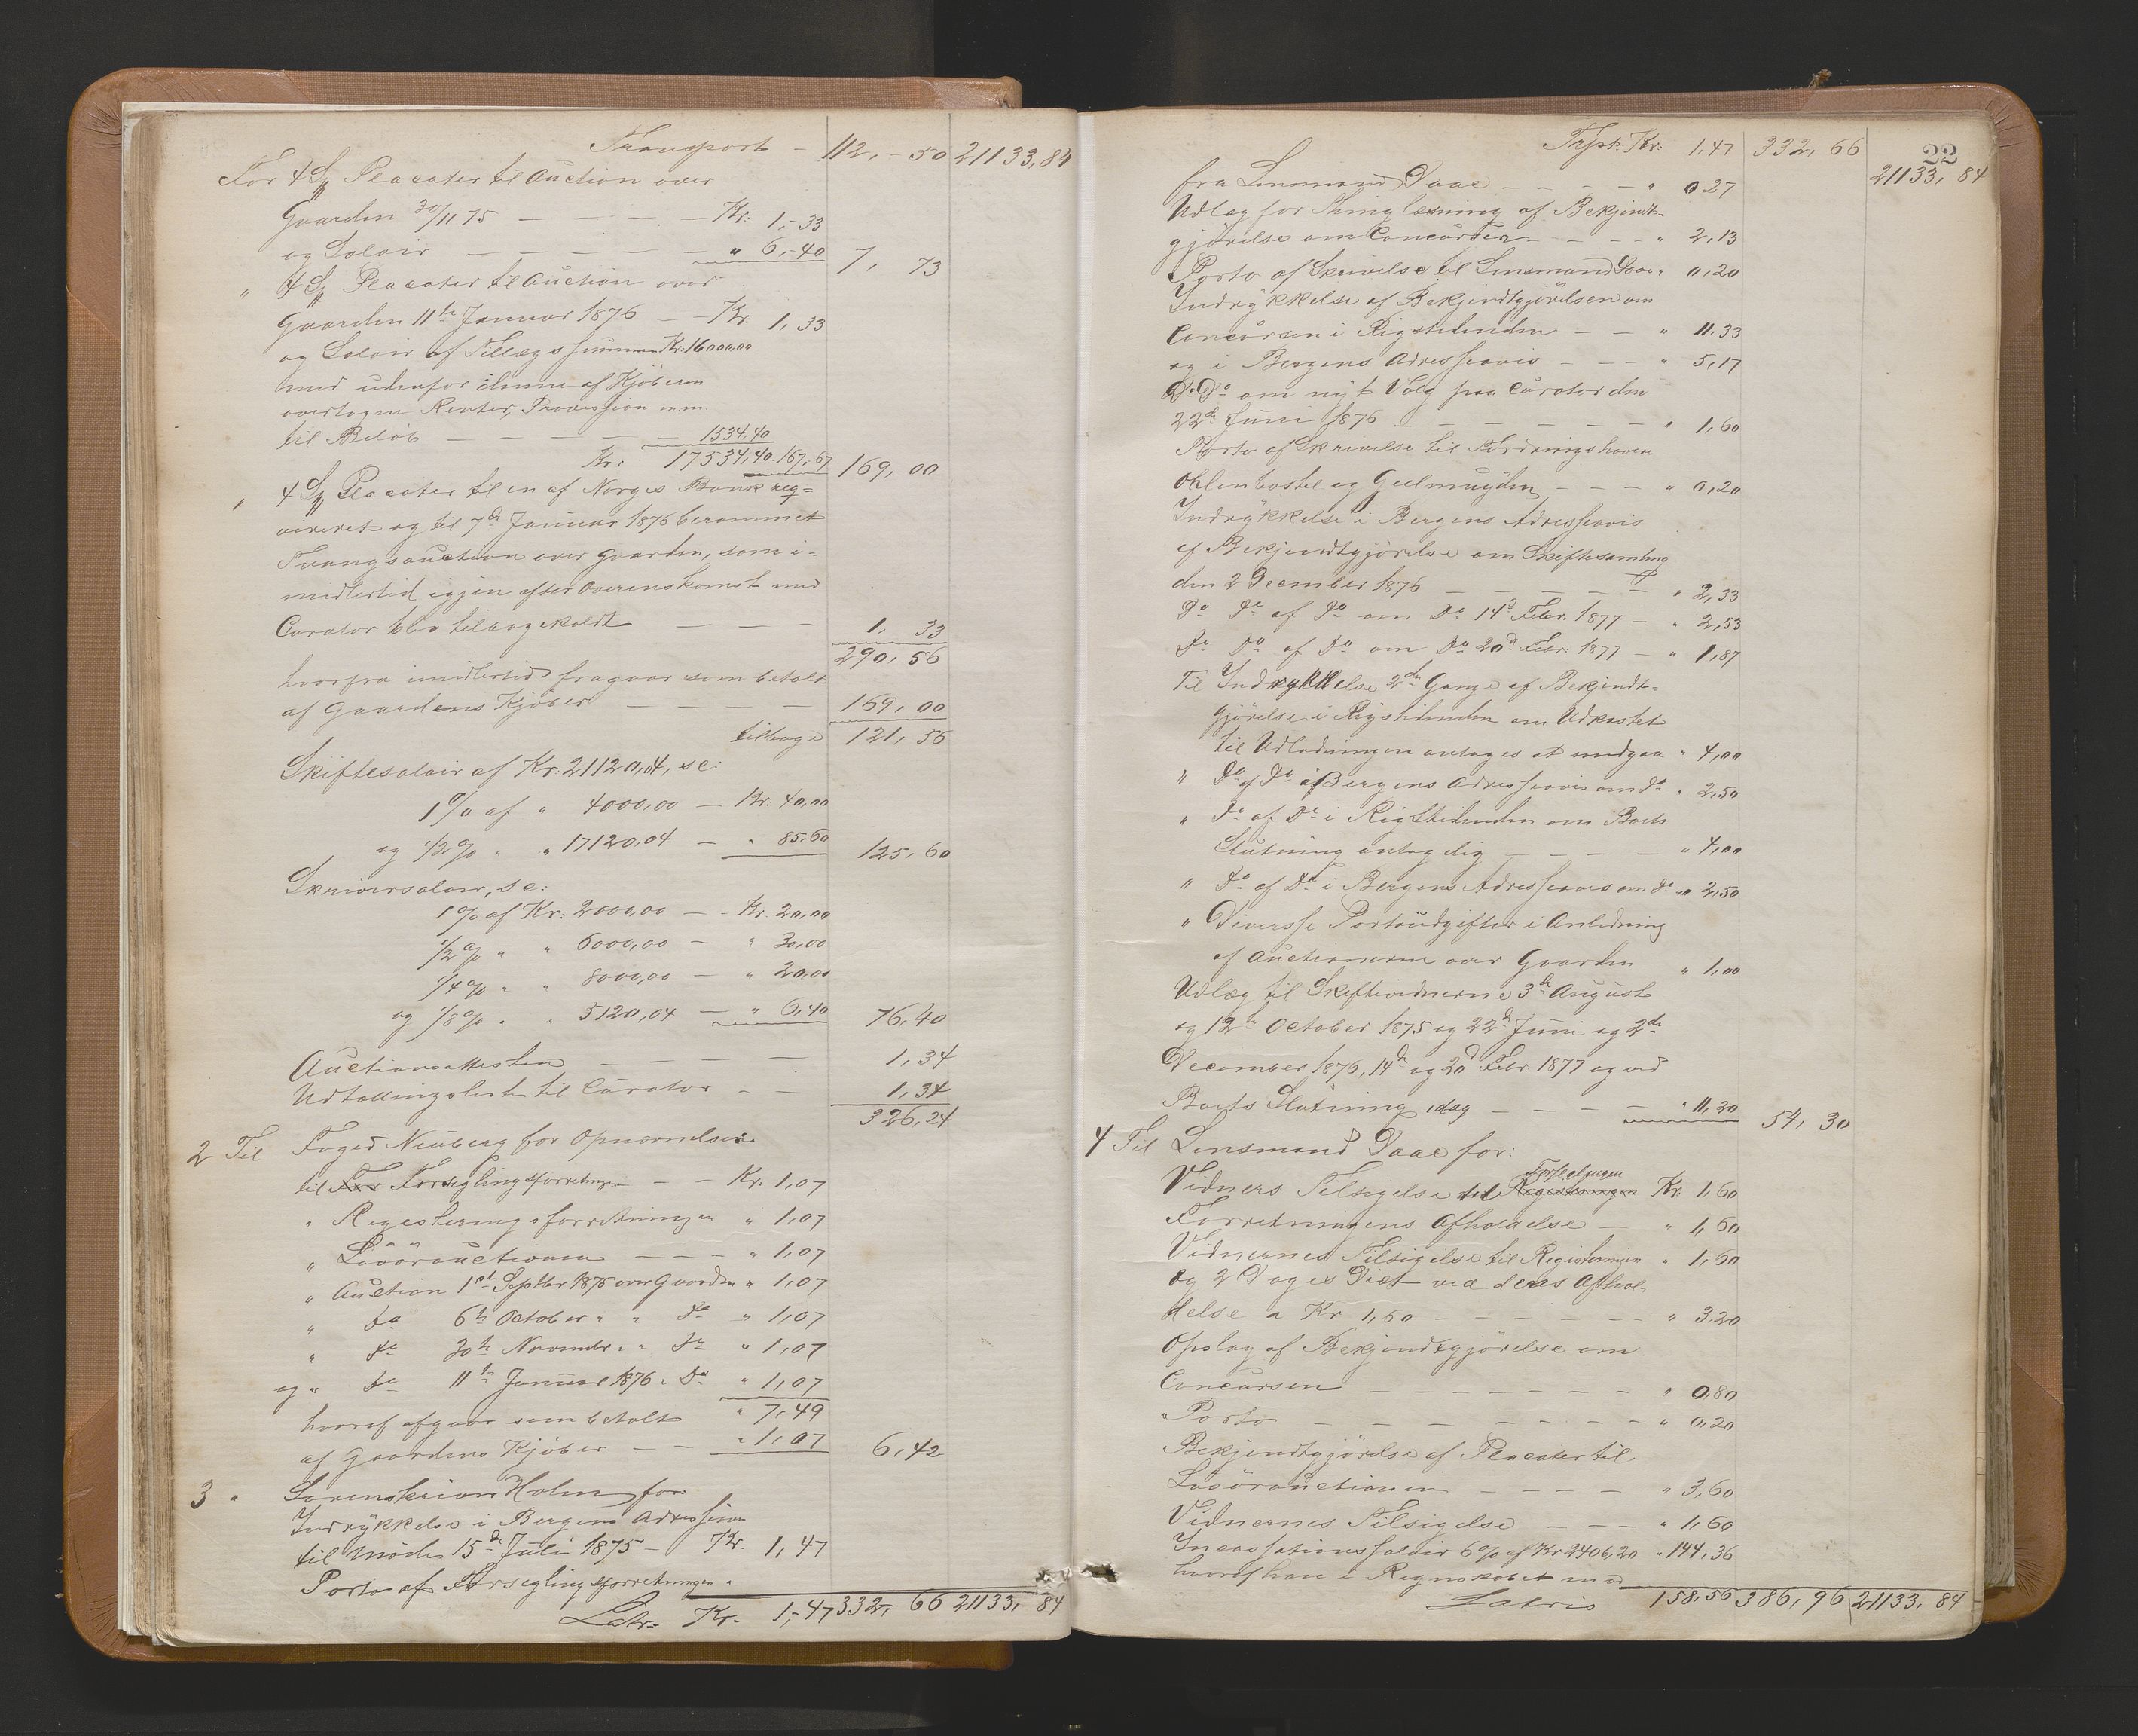 Transport - 112,-50 21133,84
For 4 Sz Placater til Auction over
Gaarden 30/11 75 — — — Kr: 1,-33
og Salair — — — — " 6,-40 7, 73
" 4 Sz Placater til Auction over
Gaarden 11te Januar 1876 — Kr: 1,33
og Salair af Tillægssummen Kr. 16000,00
med udenfor denne af Kjøberen
overtagne Renter, Provision m.m.
til Beløb — — — — 1534,40
Kr: 17534,40. 167,67 169,00
" 4 Sz Placater til en af Norges Bank reqv=
vireret og til 7de Januar 1876 berammet
Tvangsauction over Gaarden, som i=
midlertid igjen efter Overenskomst med
Curator blev tilbagekaldt — — — 1, 33
290,56
hvorfra imidlertid fragaar som betalt
af Gaardens Kjøber — — — — 169,00
tilbage 121,56
Skiftesalair af Kr. 21120,04, sc:
1 % af " 4000,00 — Kr: 40,00
og 1/2 % " " 17120,04 — " 85,60 125,60
Skriversalair, sc:
1 % af Kr: 2000,00 — - Kr. 20,00
1/2 % " " 6000,00 — " 30,00
1/4 % " " 8000,00 — " 20,00
og 1/8 % " " 5120,04 — " 6,40 76,40
Auctionsattesten — — — — 1,34
Udtallingsliste til Curator - — 1,34
326,24
2 Til Foged Neuberg for Opnævnelser
til For Forseglingsforretningen — — Kr. 1,07
" Registeringsforretningen " 1,07
" Løsøreauctionen — — - " 1,07
" Auction 1ste Septbr 1875 over Gaarden " 1,07
" do 6te October " " do " 1,07
" do 30te Novembr. " " do " 1,07
og " do 11te Januar 1876 " Do " 1,07
hvoraf afgaar som betalt " 7,49
af Gaardens Kjøber — — " 1,07 6,42
3 " Sorenskriver Holm for:
Indrykkelse i Bergens Adresseavis
til Møde 15de Juli 1875 — Kr. 1,47
Porto af Forseglingsforretningen "
Latr. Kr. 1,-47 332, 66 21133, 84
22
Trspt. Kr: 1,47 332,66 21133, 84
fra Lensmand Daae — — — - " 0 27
Udlæg for Thinglæsning af Bekjendt=
gjørelse om Concursen — — — " 2,13
Porto af Skrivelse til Lensmand Daae " 0,20
Indrykkelse af Bekjendtgjørelsen om
Concursen i Rigstidenden — — " 11,33
og i Bergens Adresseavis — — - " 5,17
Do Do om nyt Valg paa Curator den
22de Juni 1876 — — — — — " 1,60
Porto af Skrivelse til Fordringshaverne
Ohlenbostel og Geelmuyden — — — " 0,20
Indrykkelse i Bergens Adresseavis
af Bekjendtgjørelse om Skiftesamling
den 2 December 1876 — — — — — " 2,33
Do Do af Do om Do 14d Febr. 1877 — " 2,53
Do Do af Do om Do 20d Febr. 1877 — " 1,87
Til Indrykkelse 2den Gang af Bekjendt=
gjørelse i Rigstidenden om Udkastet
til Udlodningen antages at medgaa " 4,00
" Do af Do i Bergens Adresseavis om do " 2,50
" Do af Do i Rigstidenden om Boets
Slutning antagelig — — — — " 4,00
" Do af Do i Bergens Adresseavis om do " 2,50
" Diversse Portoudgifter i Anledning
af Auctionerne over Gaarden " 1,00
Udlæg til Skiftevidnerne 3de August
og 12te October 1875 og 22de Juni og 2de
December 1876, 14de og 20d Febr. 1877 og ved
Boets Slutning idag — — — — " 11,20 54, 30
4 Til Lensmand Daae for:
Forseglingen
Vidners Tilsigelse til Registeringen Kr 1,60
Forretningens Afholdelse — " 1,60
Vidnernes Tilsigelse til Registeringen " 1,60
og 2 Dages Diæt ved deres Afhol=
delse a Kr 1,60 — — — — — " 3,20
Opslag af Bekjendtgjørelse om
Concursen — — — — — — — " 0,80
" Porto — — — — — — — " 0,20
Bekjendtgjørelse af Placater til
Løsøreauctionen — — — — " 3,60
Vidnernes Tilsigelse — — — " 1,60
Incassationssalair 6 % af Kr 2406,20 " 144,36
hvoraf han i Regnskabet med
Lateris 158,56 386,96 21133, 84